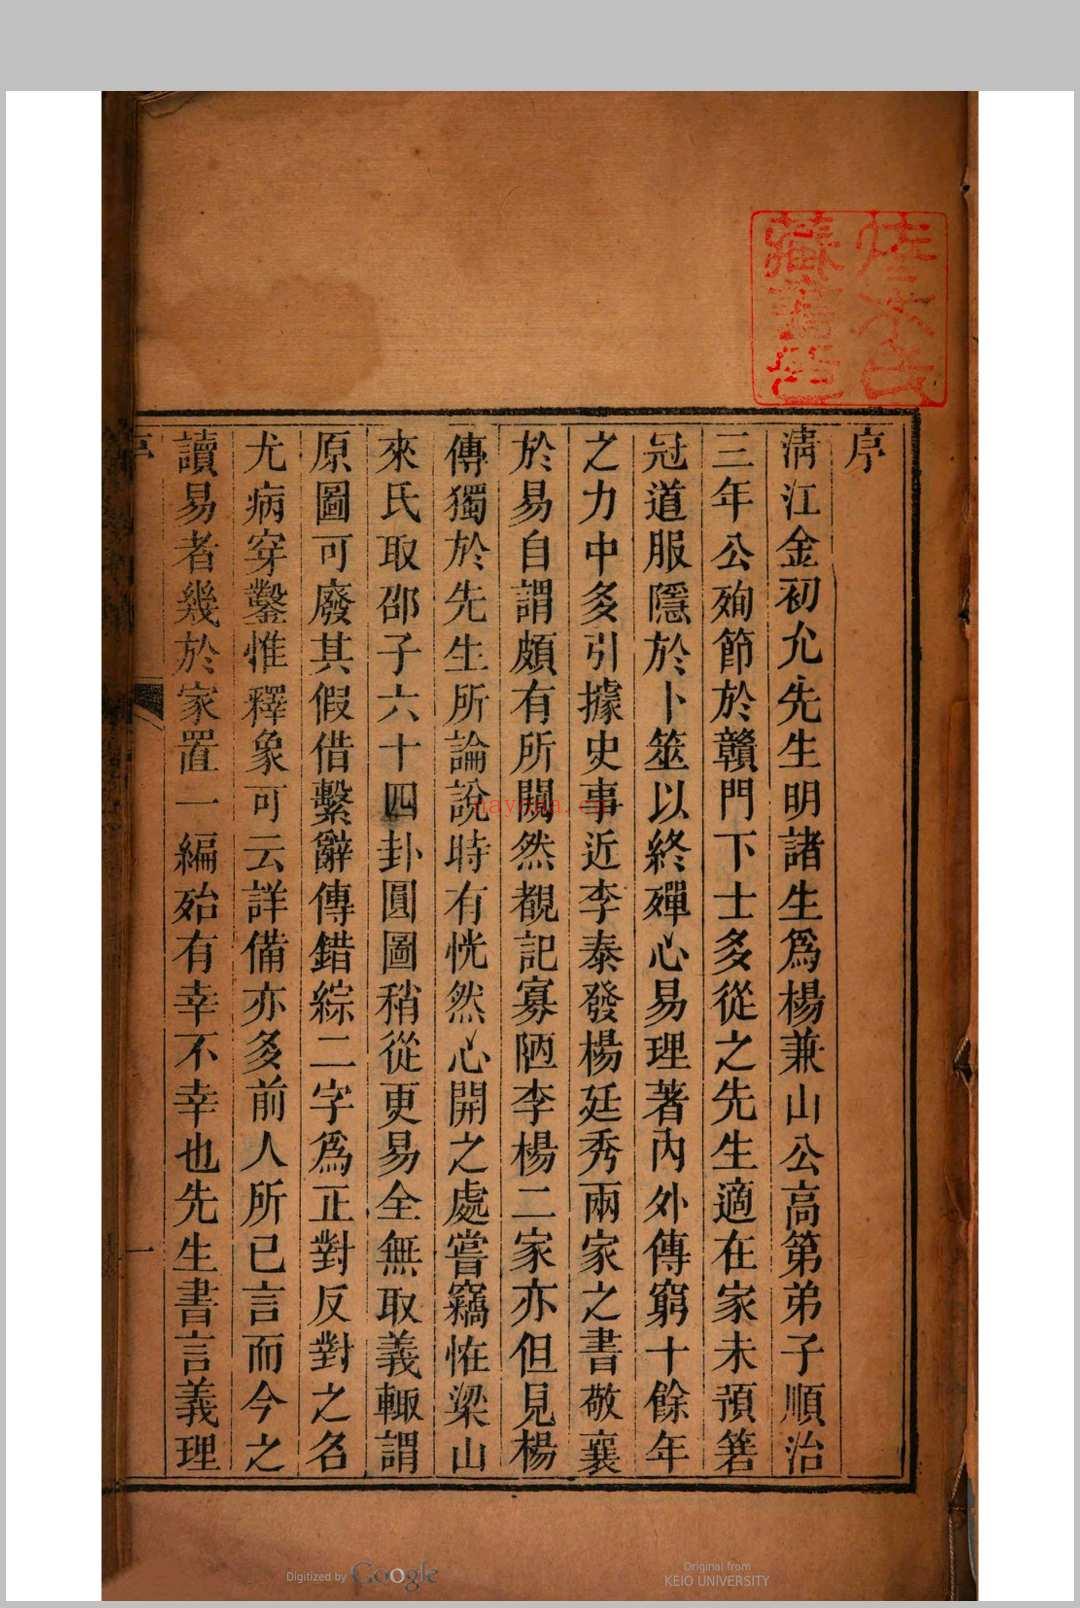 序
清江金初允先生明諸生爲楊兼山公高第弟子順治
三年公殉節於贛門下士多從之先生適在家未預箬
冠道服隱於卜筮以終殫心易理著內外傳窮十餘年
之力中多引據史事近李泰發楊廷秀兩家之書敬襄
於易自謂頗有所闚然覩記寡陋李楊二家亦但見楊
傳獨於先生所論說時有恍然心開之處嘗竊恠梁山
來氏取邵子六十四卦圓圖稍從更易全無取義輙謂
原圖可廢其假借繫辭傳錯綜二字爲正對反對之名
尤病穿鑿惟釋象可云詳備亦多前人所已言而今之
讀易者幾於家置一編殆有幸不幸也先生書言義理
序
一
Digitized by Google
Original from
KEIO UNIVERSITY